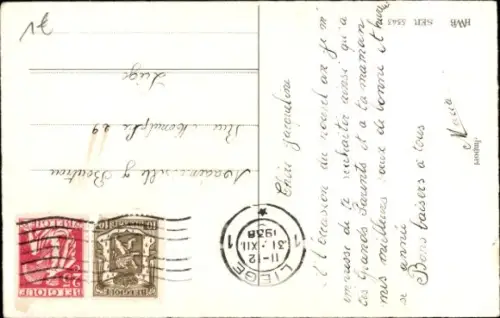 HWB SER. 5543
Import
Chère Jacqueline
A l'occasion du nouvel an je m'
empresse de te souhaiter ainsi qu'à
tes Grands Parents et à ta maman
mes meilleurs vœux de bonne et heure
se année
Bons baisers à tous
Maria
Mademoiselle J
Rue
29
Liège
LIEGE 1
11-12
31 XII
1938
1
BELGIQUE
BELGIE
10
BELGIQUE
BELGIE
25
1 €